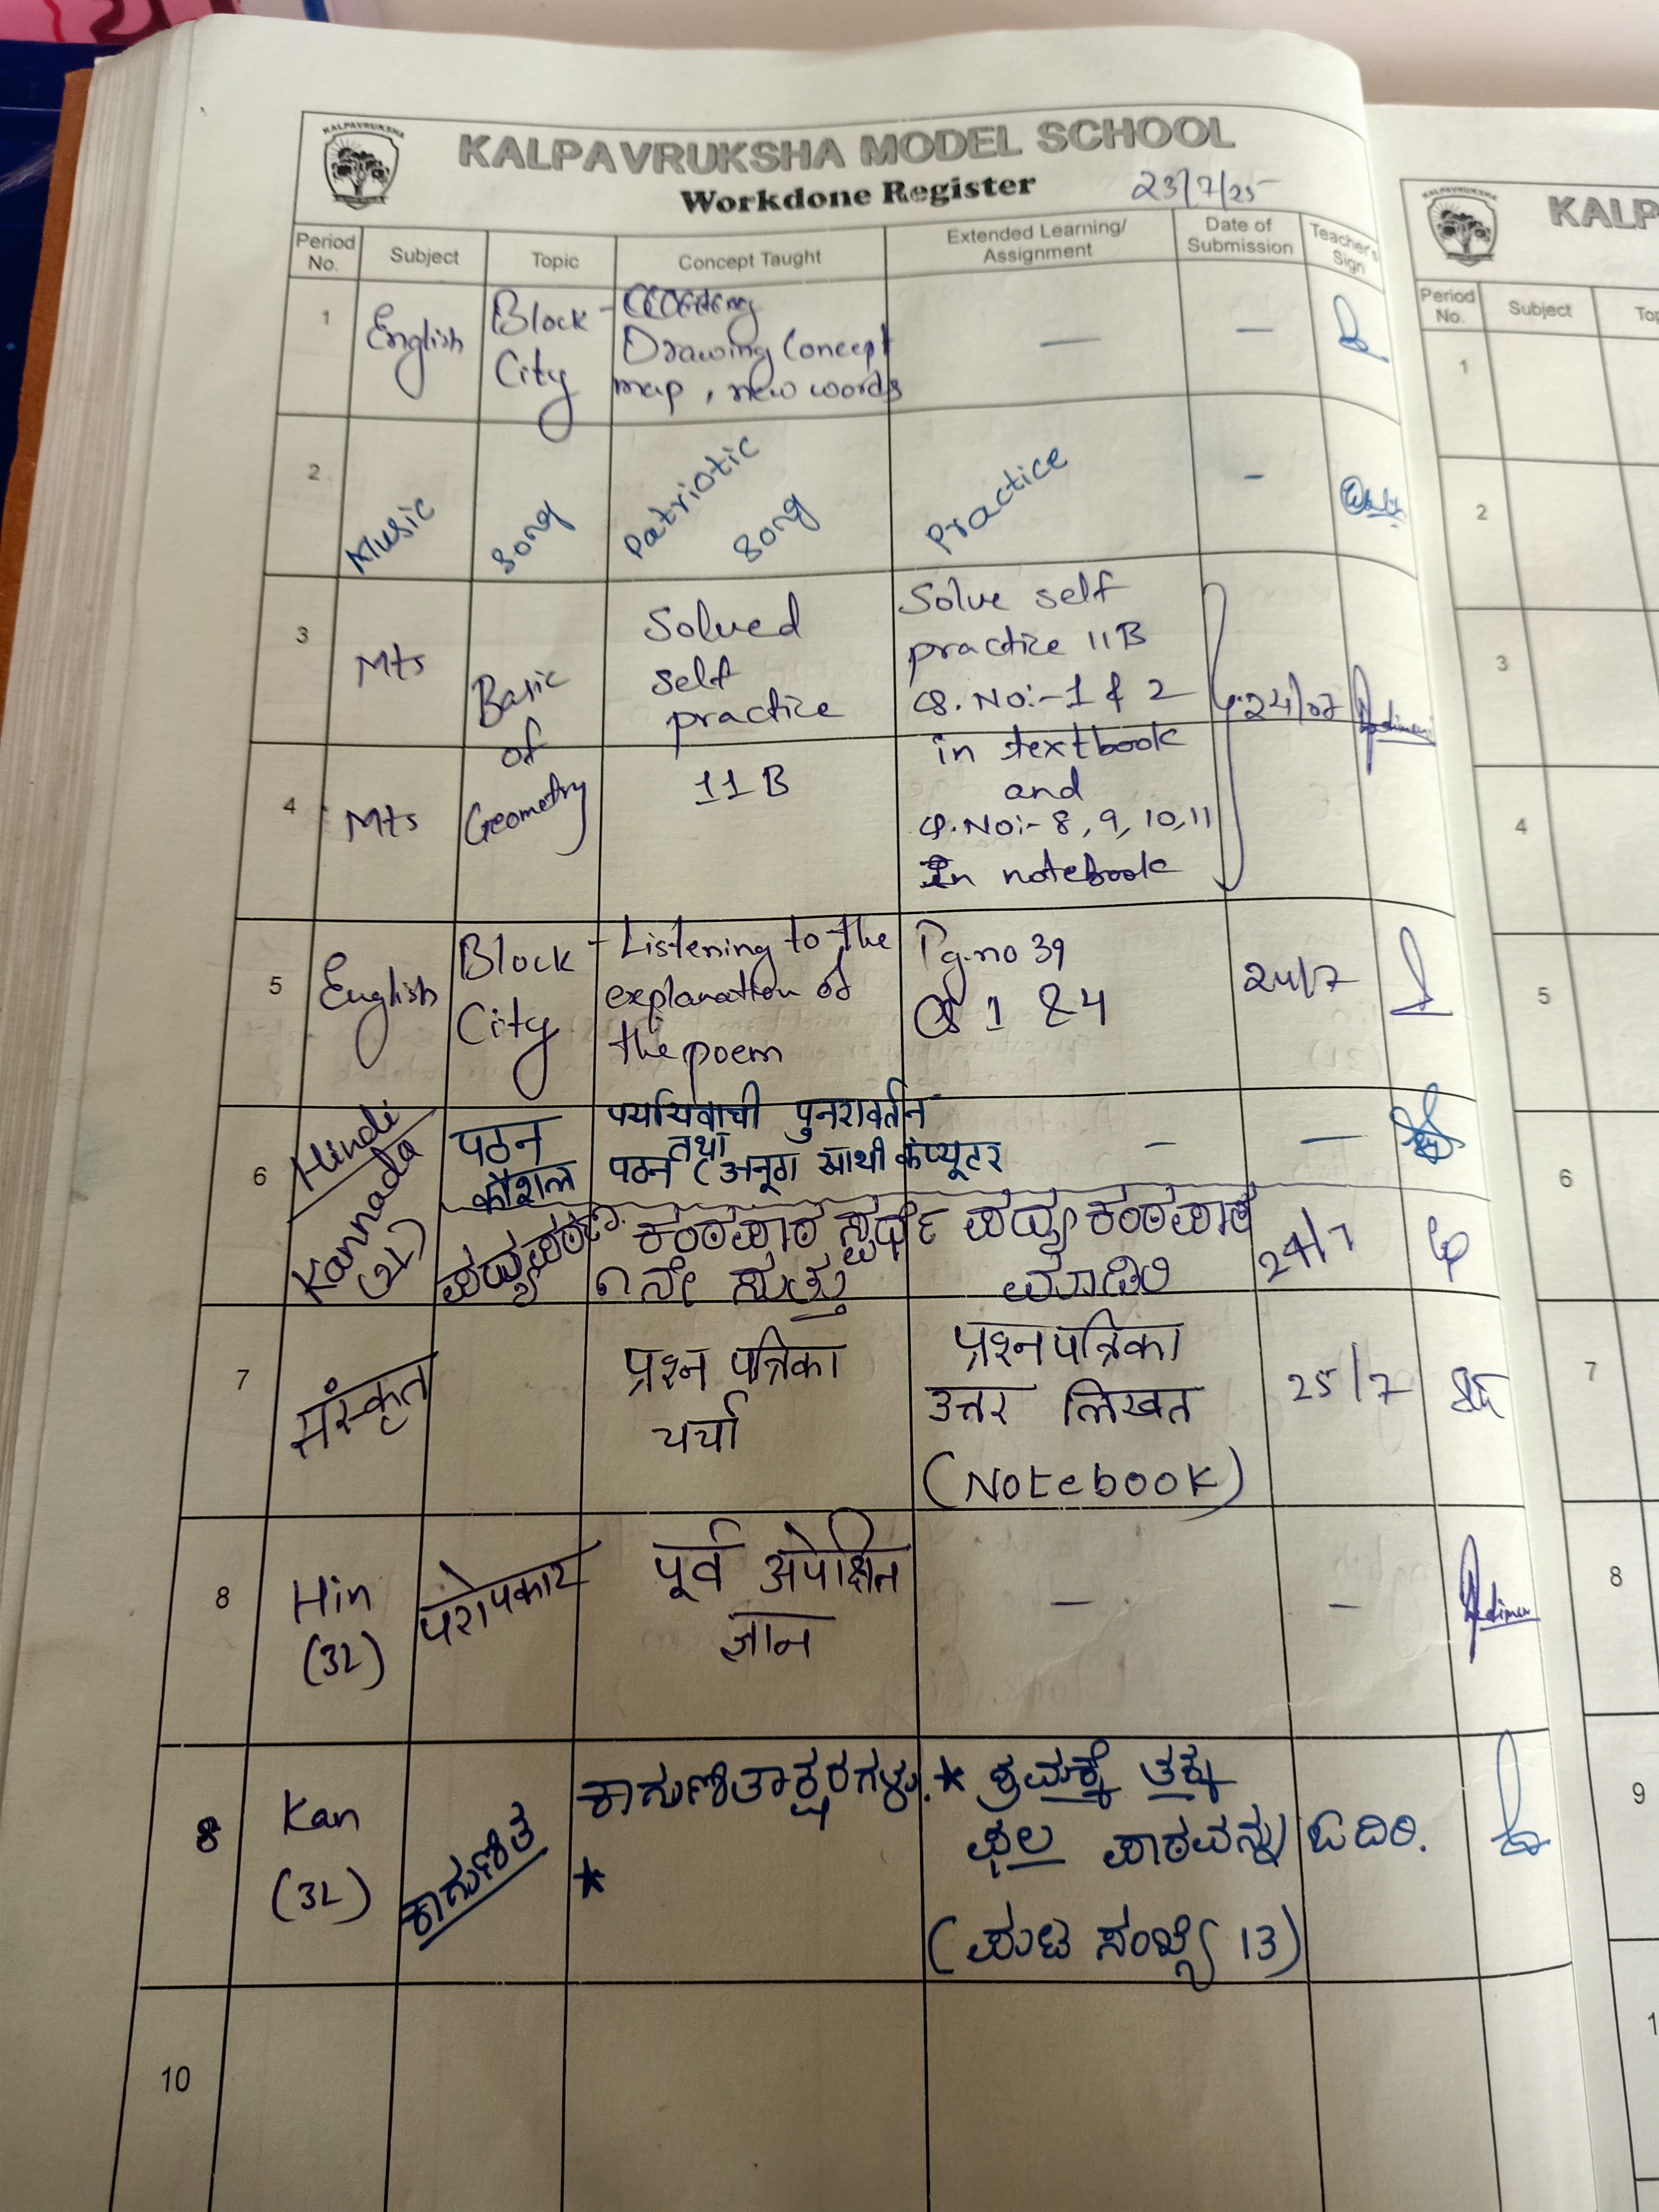 KALPAVRUKSHA
KALPAVRUKSHA MODEL SCHOOL
Workdone Register
23/7/25
Period No.
Subject
Topic
Concept Taught
Extended Learning/
Assignment
Date of
Submission
Teacher's
Sign
1
English
Block
City
Drawing Concept
map, new words
—
—
2
Music
Song
Patriotic
Song
Practice
-
3
Mts
Basic
of
Geometry
Solved
self
practice
11B
Solve self
practice 11B
Q. No:- 1 & 2
in textbook
and
Q. No:- 8, 9, 10, 11
In notebook
24/07
4
Mts
5
English
Block
City
- Listening to the
explanation of
the poem
Pg.no 39
Q 1 & 4
24/7
6
Hindi
पठन
कौशल
पर्यायवाची पुनरावर्तन
तथा
पठन (अनूठा साथी कंप्यूटर
–
–
Kannada
(2L)
ಕಂಠಪಾಠ ಸ್ಪರ್ಧೆ
೧ನೇ ಸುತ್ತು
ಪದ್ಯ ಕಂಠಪಾಠ
ಮಾಡಿರಿ
24/7
7
संस्कृत
प्रश्न पत्रिका
चर्चा
प्रश्नपत्रिका
उत्तर लिखत
(Notebook)
25/7
8
Hin
(3L)
परोपकार
पूर्व अपेक्षित
ज्ञान
–
–
8
Kan
(3L)
ಕಾಗುಣಿತ
ಕಾಗುಣಿತಾಕ್ಷರಗಳು.
*
* ಶ್ರಮಕ್ಕೆ ತಕ್ಕ
ಫಲ ಪಾಠವನ್ನು ಓದಿರಿ.
(ಪುಟ ಸಂಖ್ಯೆ 13)
10
KALPAVRUKSHA
KALP
Period
No.
Subject
Top
1
2
3
4
5
6
7
8
9
1